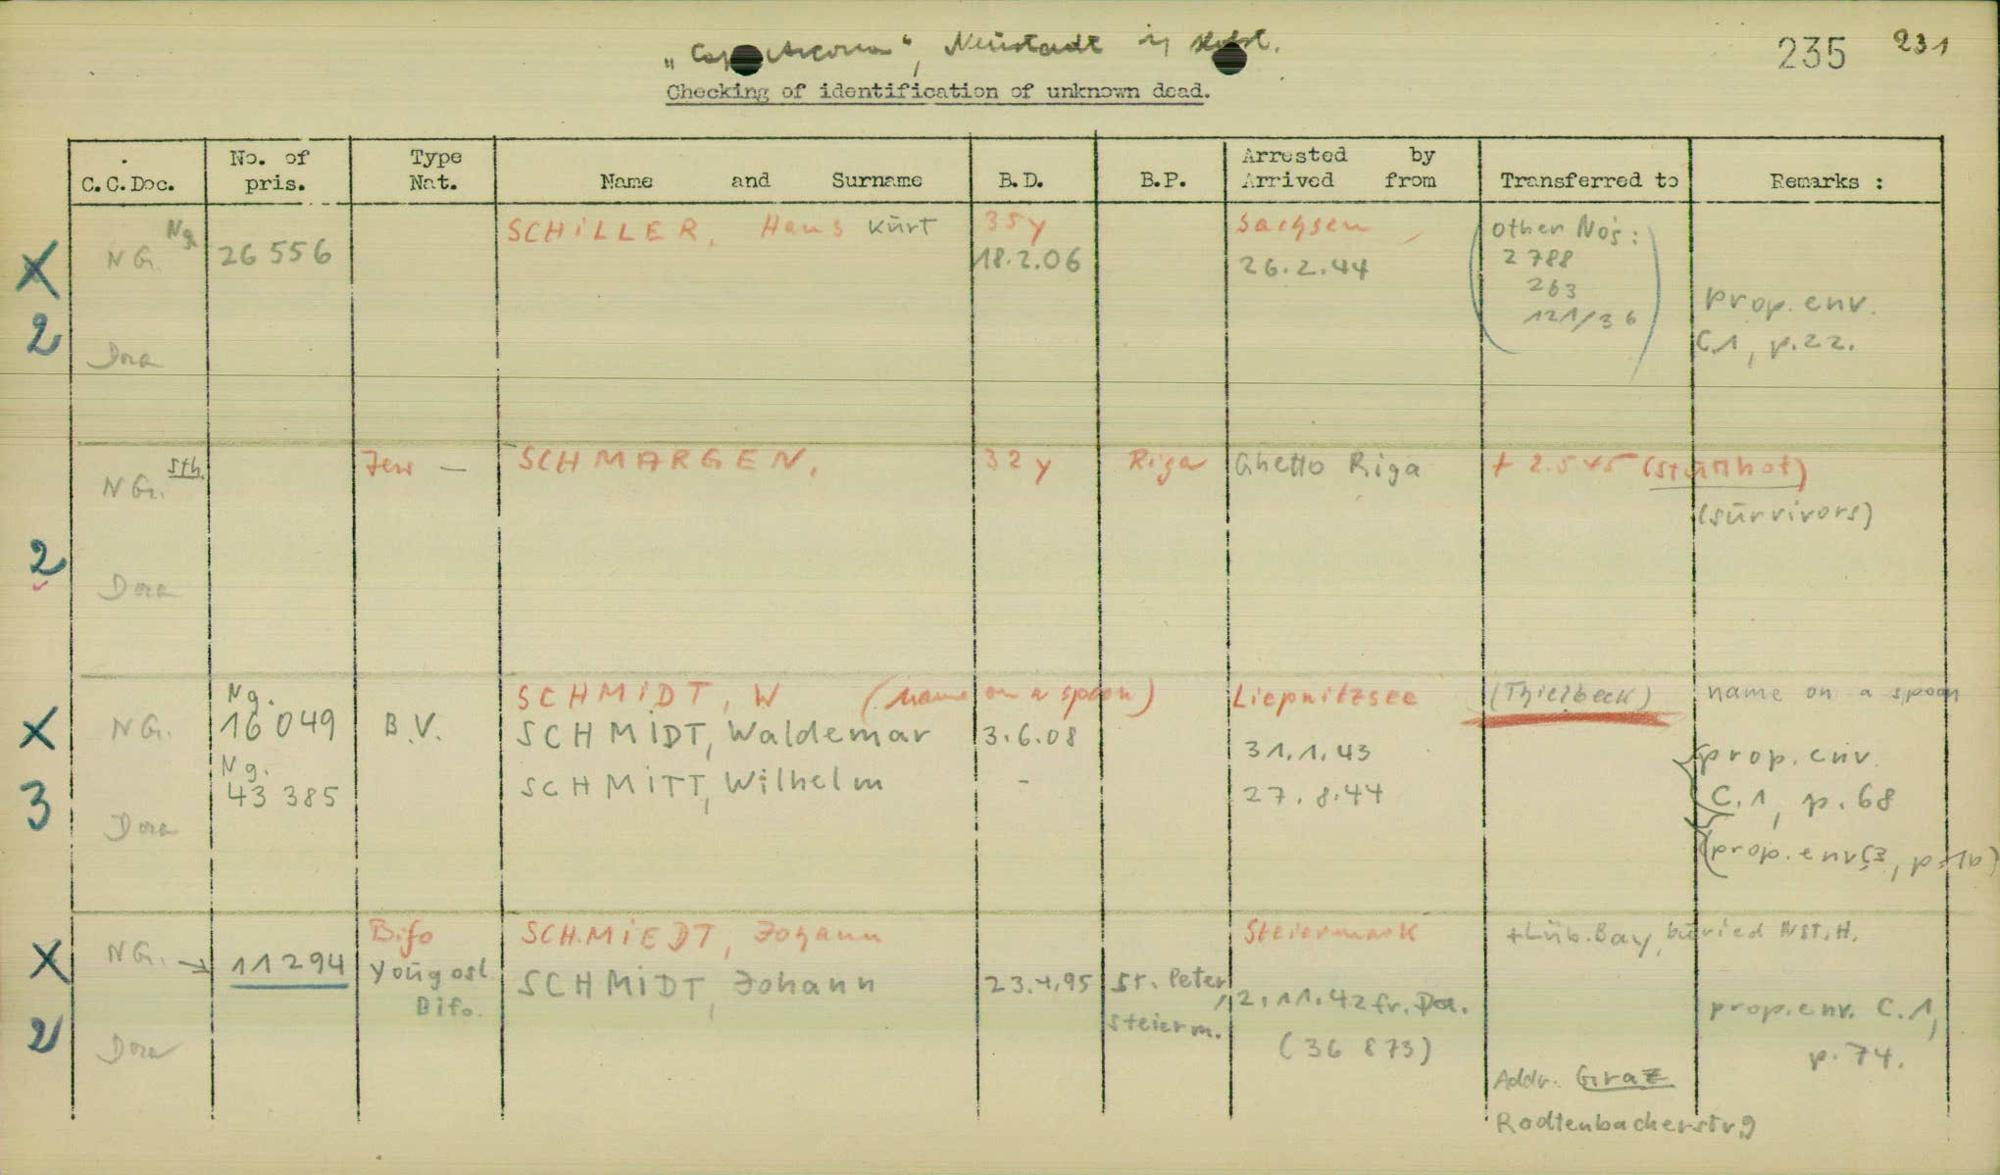 „Cap Arcona“, Neustadt in Holst.
235 231
Checking of identification of unknown dead.
C.C.Doc.
No. of pris.
Type Nat.
Name and Surname
B.D.
B.P.
Arrested by
Arrived from
Transferred to
Remarks :
X
2
NG. Ng.
Dora
26 556
SCHiLLER, Hans Kurt
35y
18.2.06
Sachsen
26.2.44
other No's:
2 788
263
121/36
prop. env.
C.1, p.22.
2
NGr. Sth.
Dora
Jew —
SCHMARGEN,
32 y
Riga
Ghetto Riga
+ 2.5 45 (Stutthof)
(survivors)
X
3
NG.
Dora
Ng.
16 049
Ng.
43 385
B.V.
SCHMiDT, W (name on a spoon)
SCHMiDT, Waldemar
SCHMiTT, Wilhelm
3.6.08
-
Liepnitzsee
31.1.43
27.8.44
(Thielbeck)
name on a spoon
prop. env.
C.1, p.68
(prop. env C3, p.1b)
X
2
NG.
Dora
11294
Bifo
Yougosl.
Bifo.
SCHMiEDT, Johann
SCHMiDT, Johann
23.4.95
St. Peter,
Steierm.
Steiermark
2.11.42 fr. Da.
(36 873)
+Lüb. Bay, buried NST.H.
prop. env. C.1,
p. 74.
Addr. Graz
Rodtenbacherstr 9